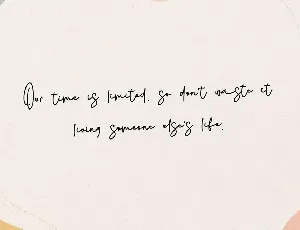 Our time is limited, so don't waste it
living someone else's life.